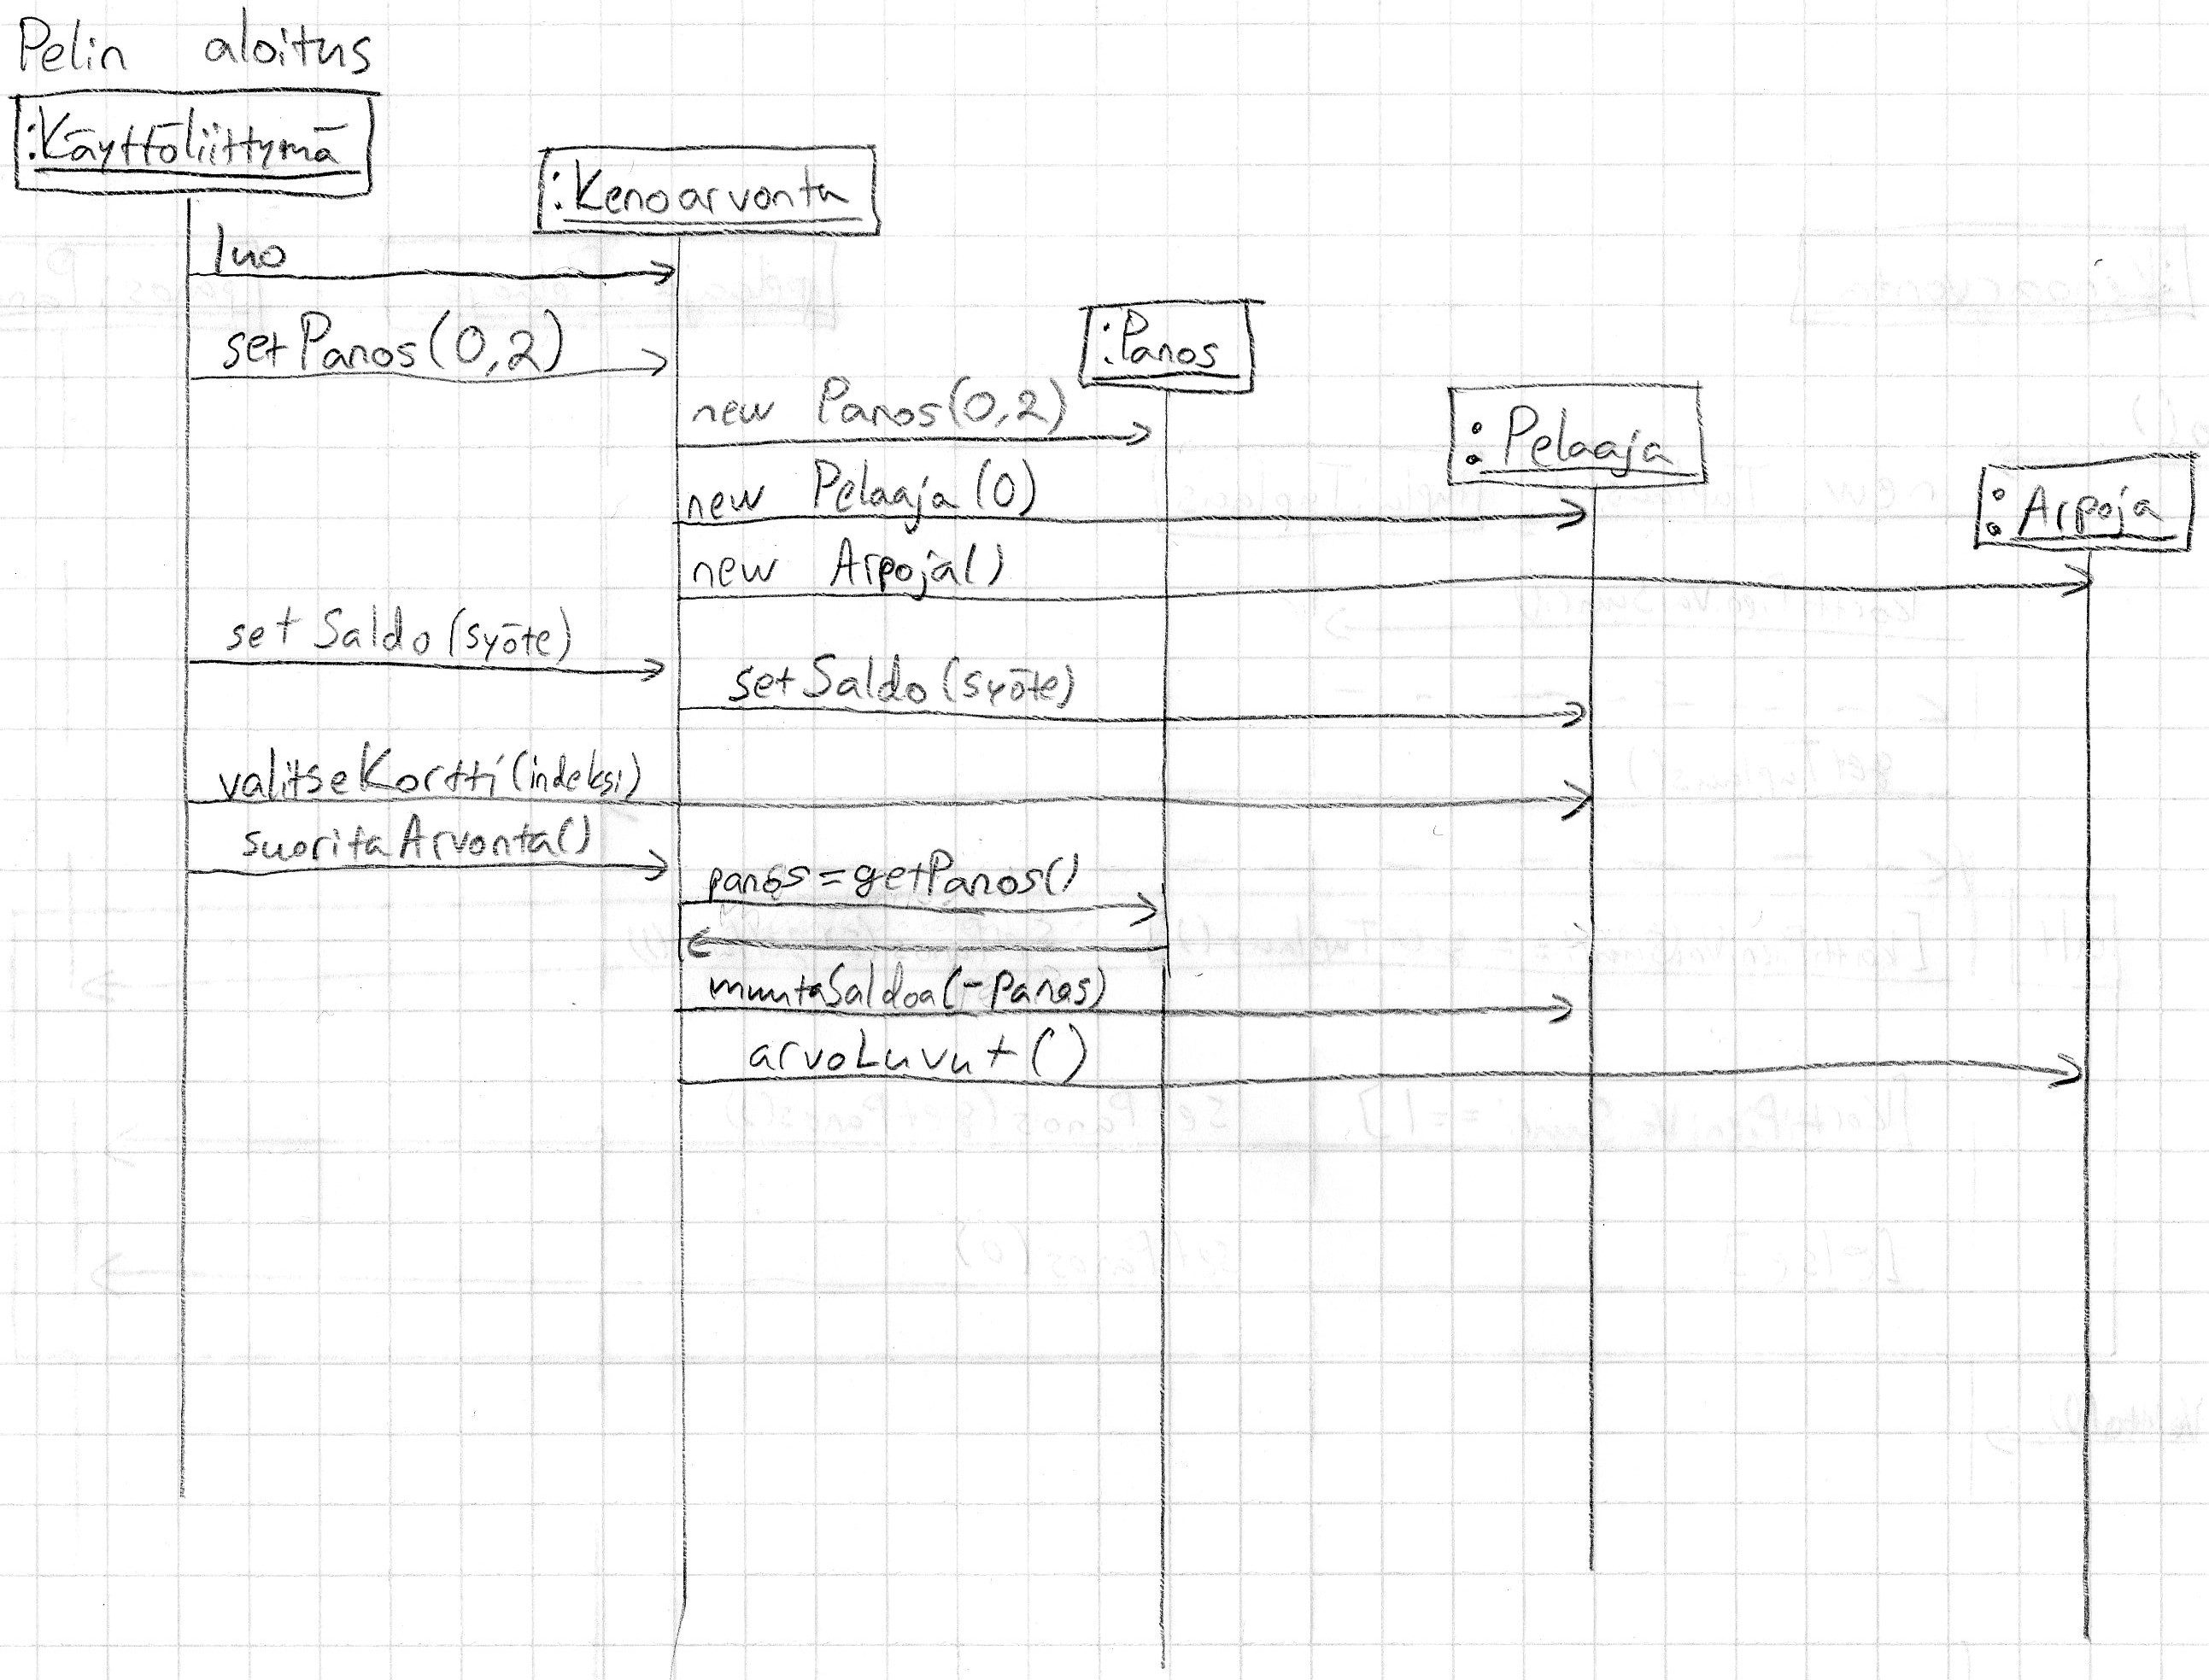 Pelin aloitus
:Käyttöliittymä
:Kenoarvonta
luo
setPanos(0,2)
:Panos
new Panos(0,2)
:Pelaaja
new Pelaaja(0)
:Arpoja
new Arpoja()
setSaldo(syöte)
setSaldo(syöte)
valitseKortti(indeksi)
suoritaArvonta()
panos=getPanos()
muutaSaldoa(-panos)
arvoLuvut()